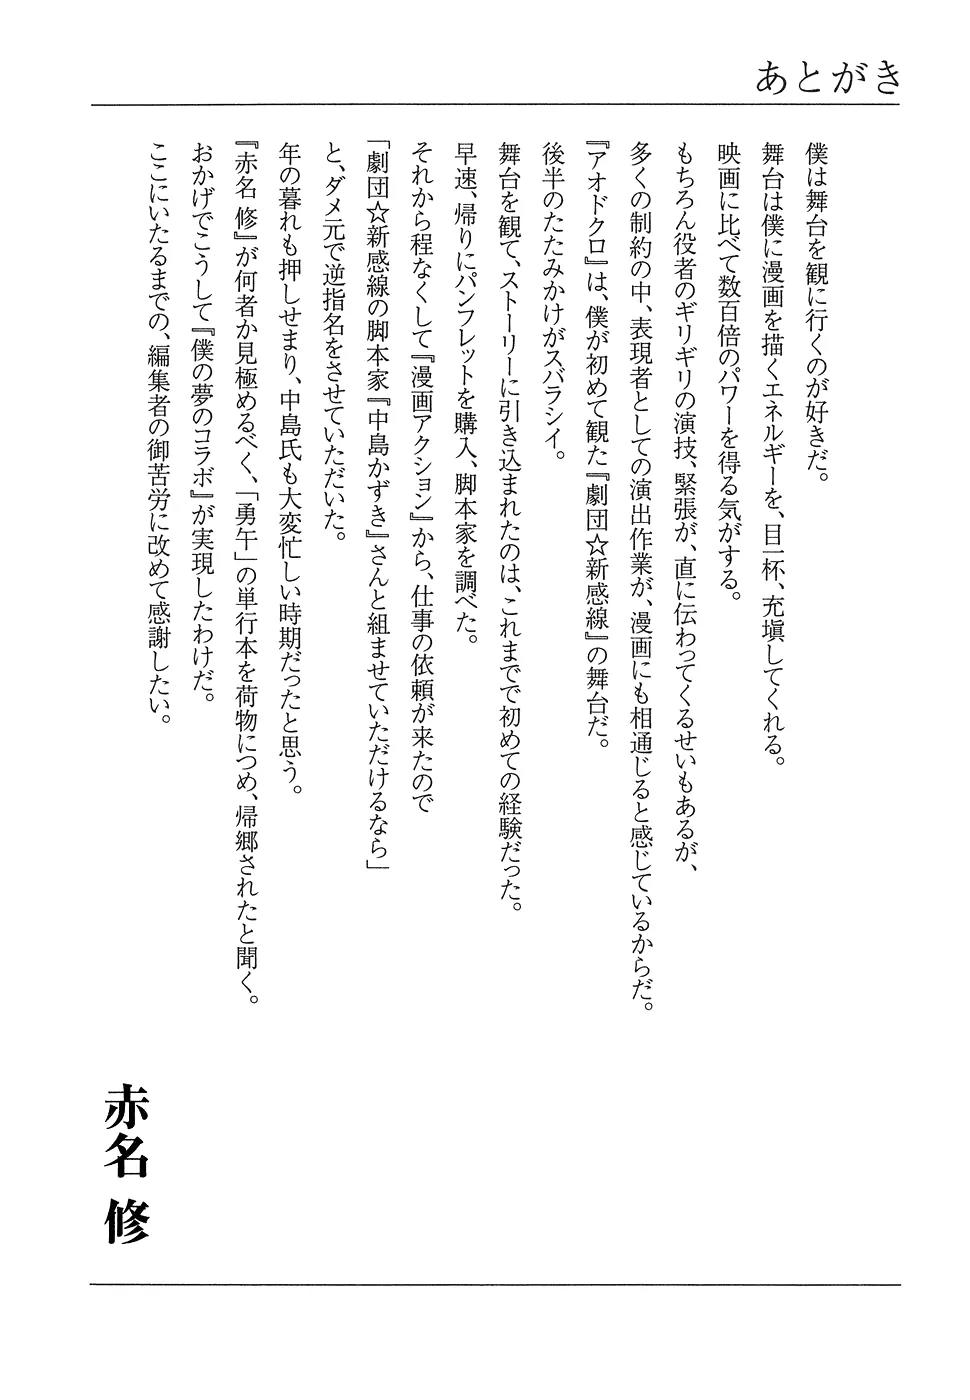 あとがき
僕は舞台を観に行くのが好きだ。
舞台は僕に漫画を描くエネルギーを、目一杯、充塡してくれる。
映画に比べて数百倍のパワーを得る気がする。
もちろん役者のギリギリの演技、緊張が、直に伝わってくるせいもあるが、
多くの制約の中、表現者としての演出作業が、漫画にも相通じると感じているからだ。
『アオドクロ』は、僕が初めて観た『劇団☆新感線』の舞台だ。
後半のたたみかけがスバラシイ。
舞台を観て、ストーリーに引き込まれたのは、これまでで初めての経験だった。
早速、帰りにパンフレットを購入、脚本家を調べた。
それから程なくして『漫画アクション』から、仕事の依頼が来たので
「劇団☆新感線の脚本家『中島かずき』さんと組ませていただけるなら」
と、ダメ元で逆指名をさせていただいた。
年の暮れも押しせまり、中島氏も大変忙しい時期だったと思う。
『赤名 修』が何者か見極めるべく、「勇午」の単行本を荷物につめ、帰郷されたと聞く。
おかげでこうして『僕の夢のコラボ』が実現したわけだ。
ここにいたるまでの、編集者の御苦労に改めて感謝したい。
赤名 修